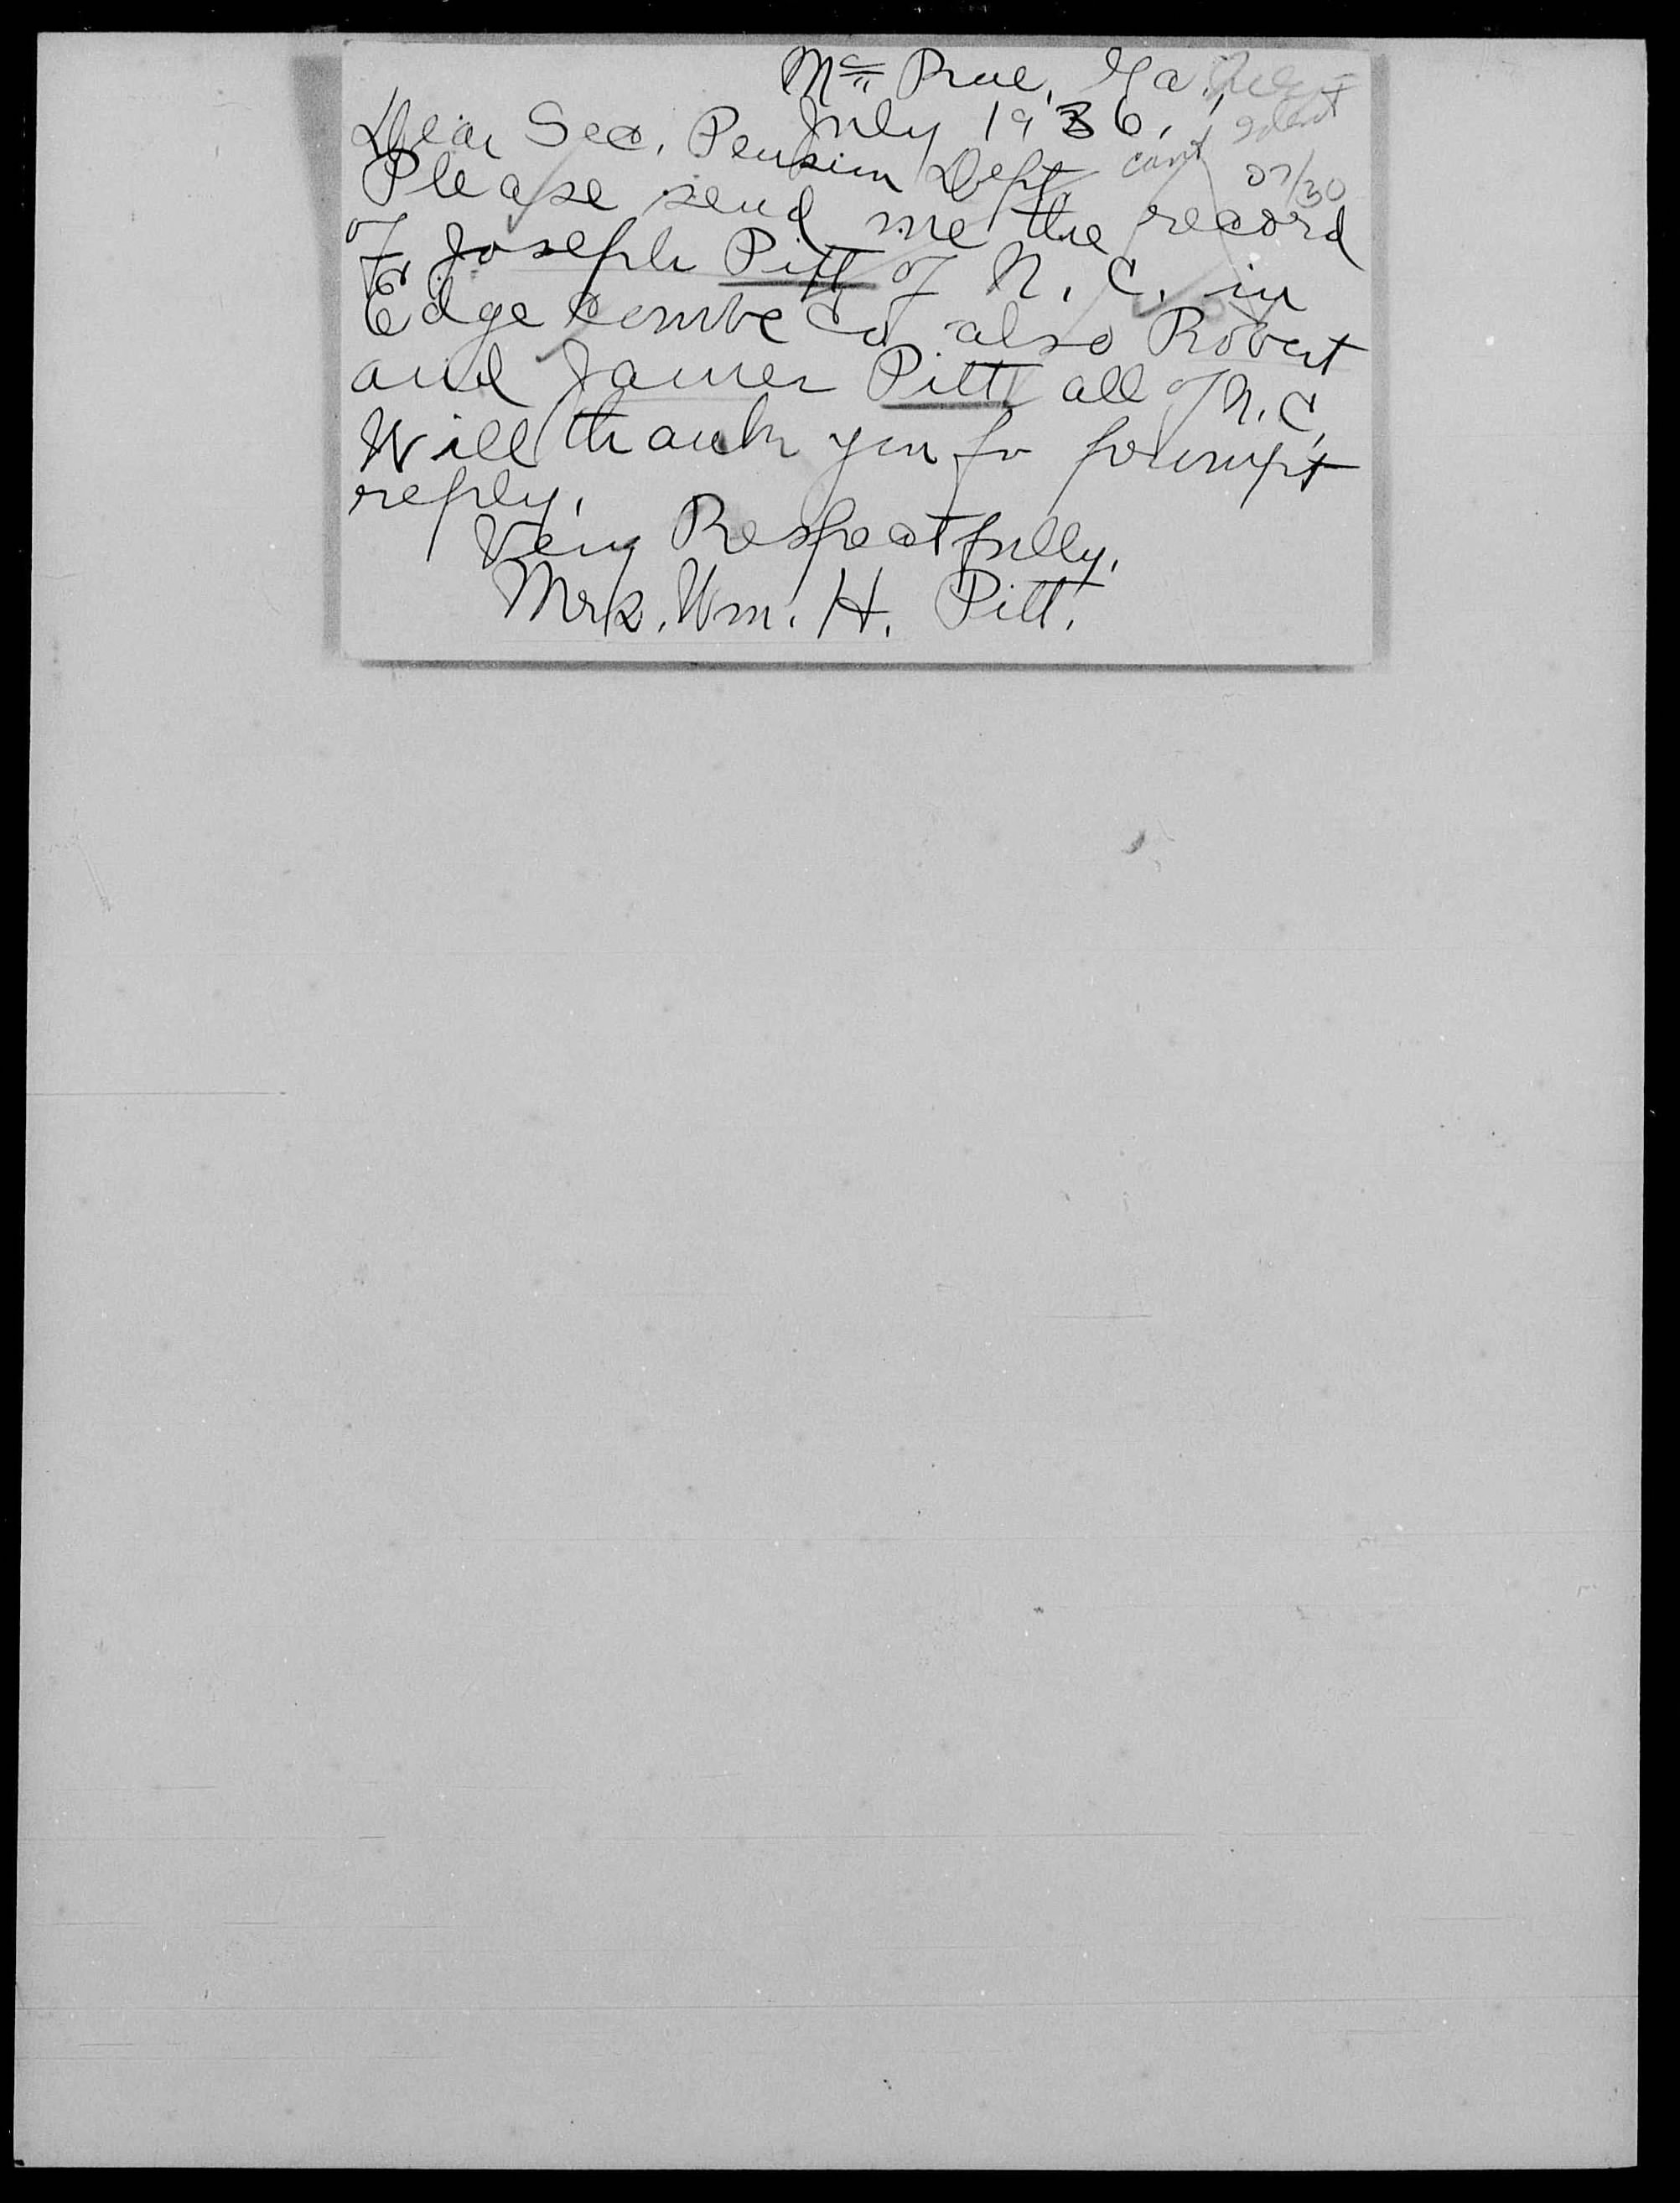 Mc Rae, Ga.
July 1936.
Dear Sec. Pension Dept
can't Ident
07/30
Please send me the record
of Joseph Pitt of N. C. in
Edgecombe Co also Robert
and James Pitt all of N. C.
Will thank you for prompt
reply.
Very Respectfully,
Mrs. Wm. H. Pitt.